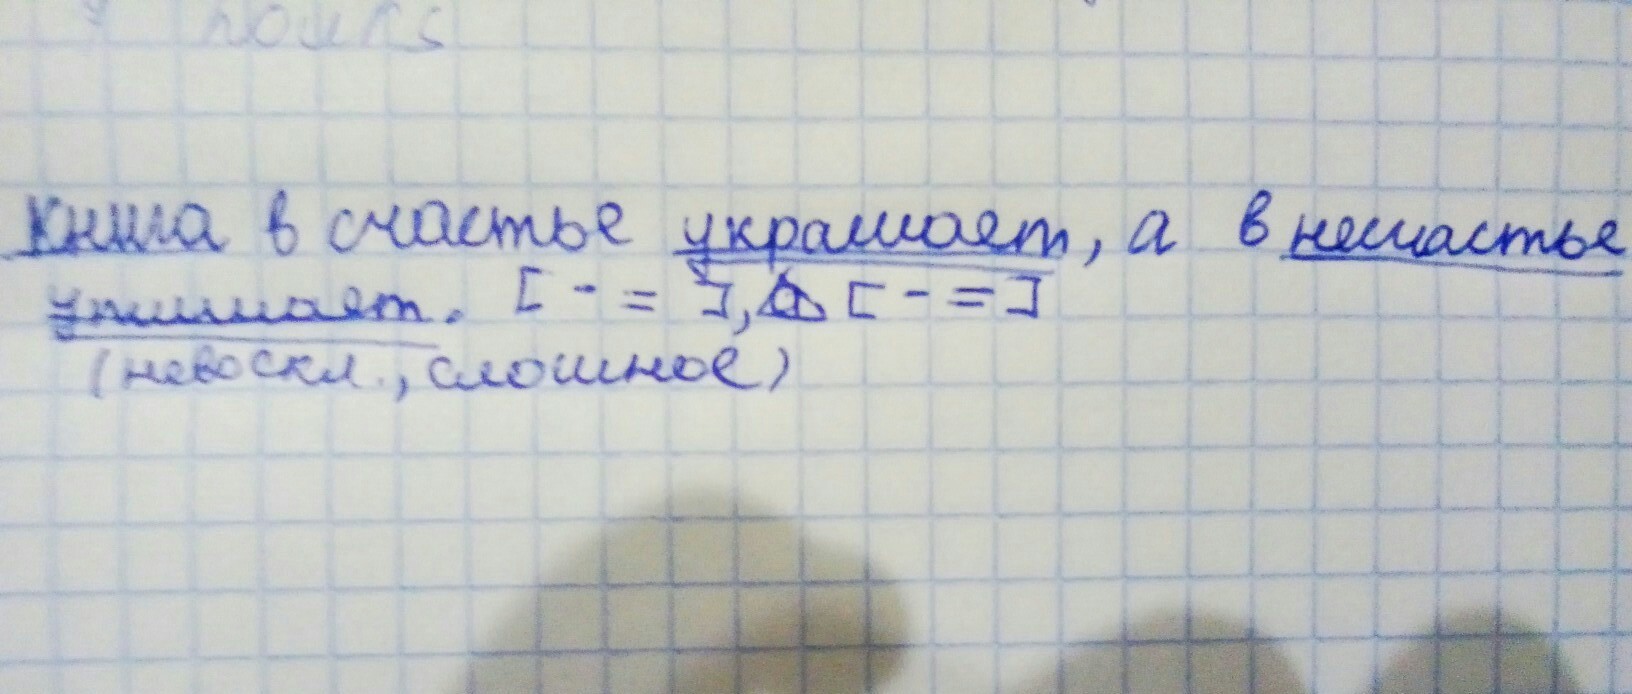 книга в счастье украшает, а в несчастье
утешает. [ - = ], а [ - = ]
(невоскл., сложное)